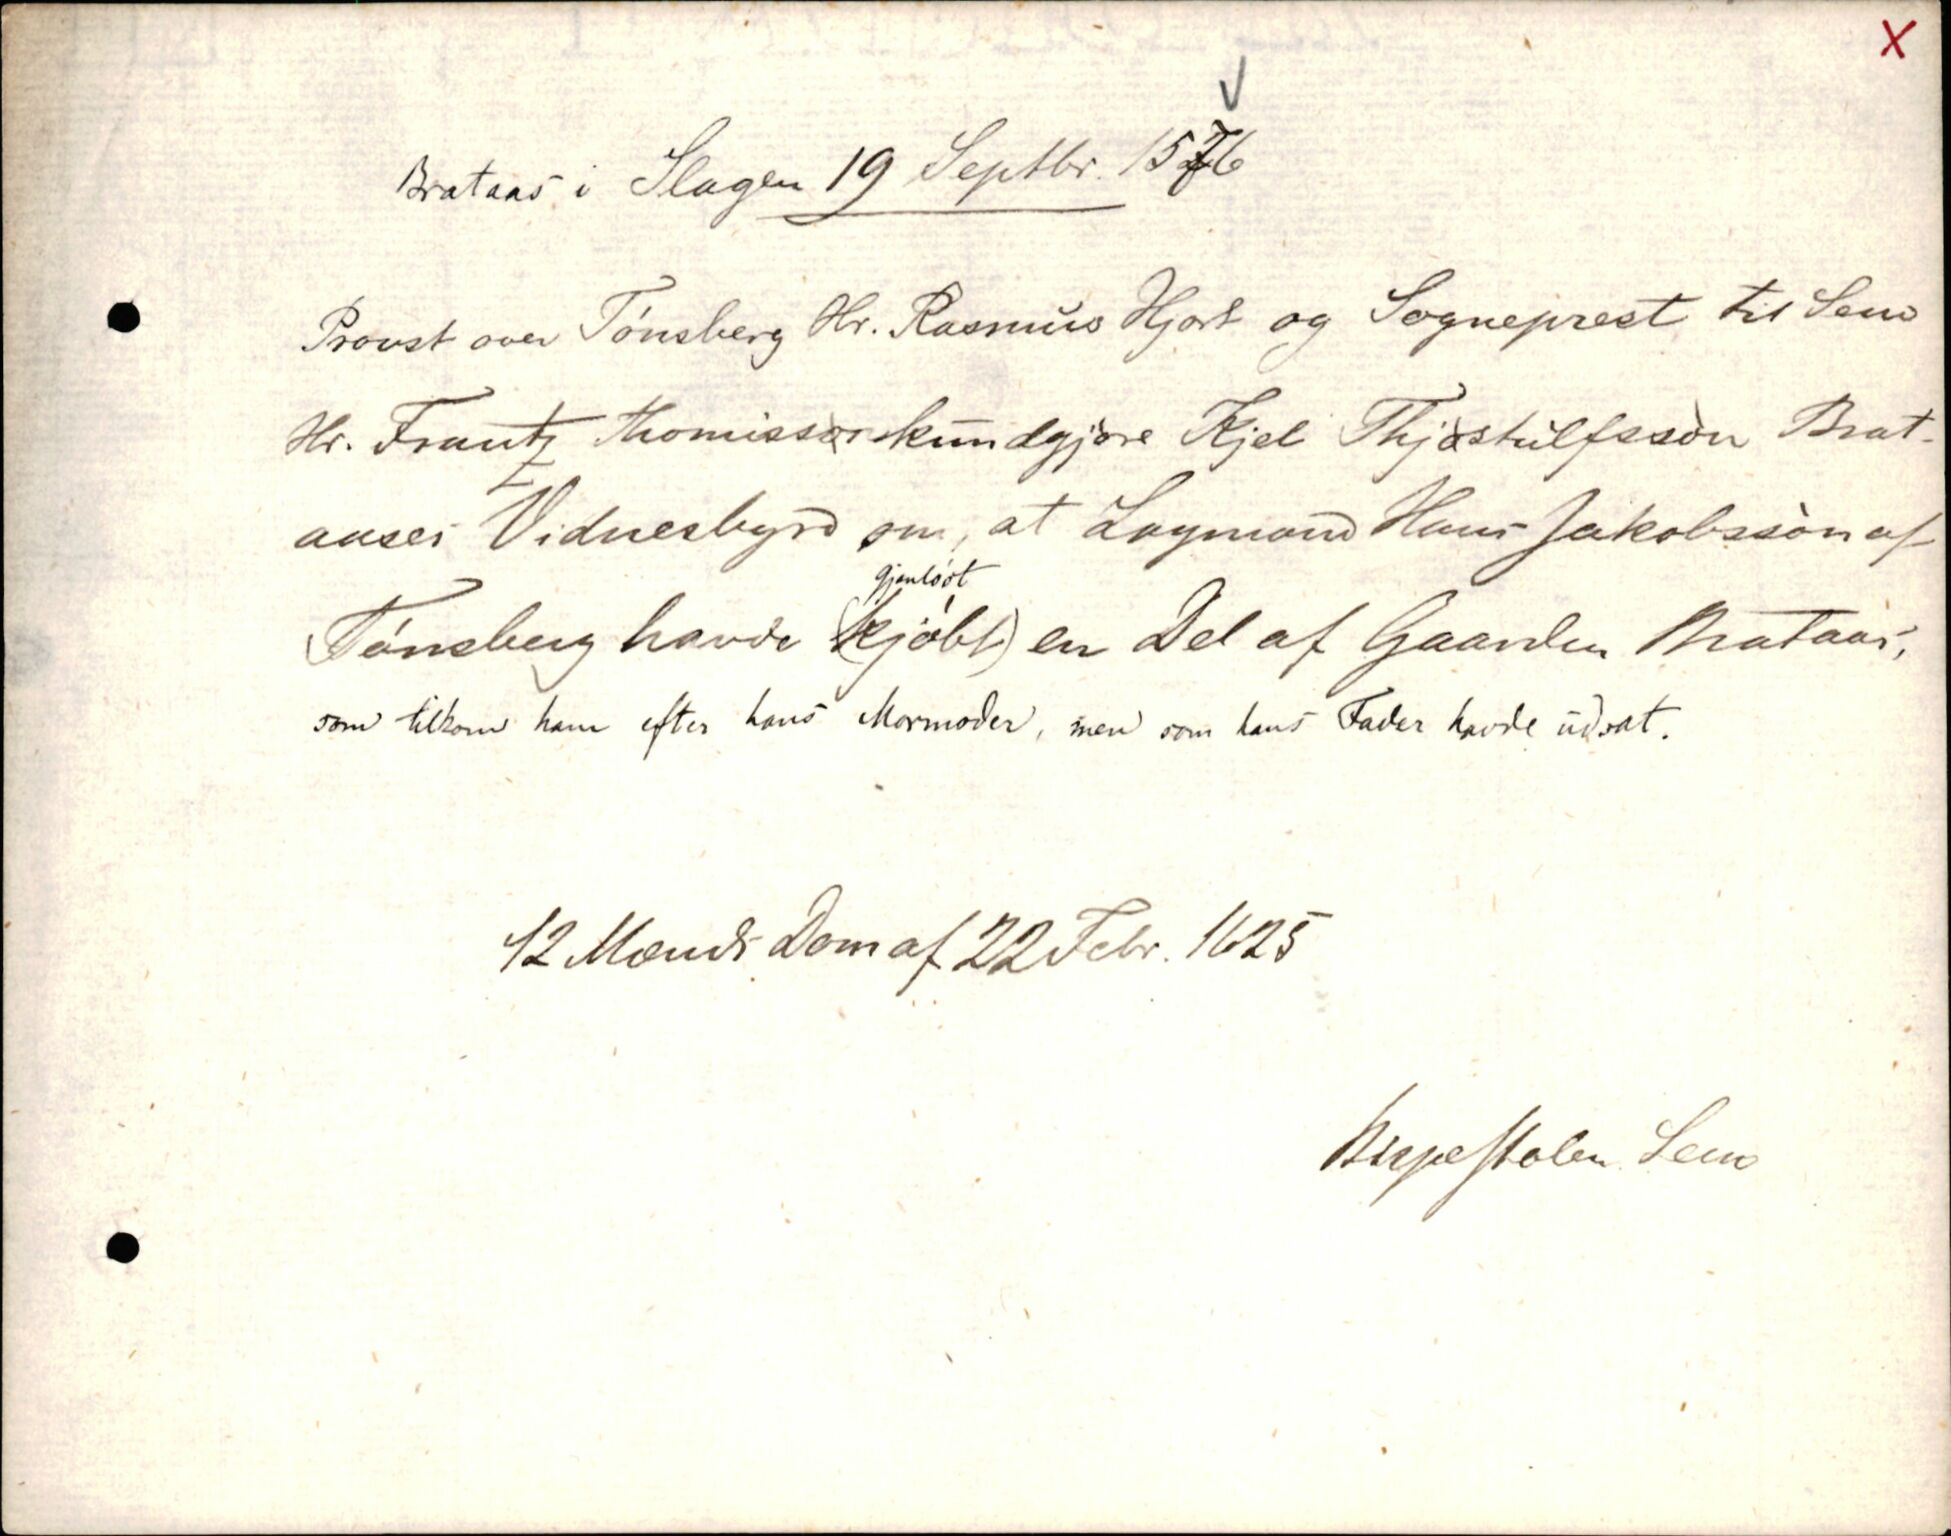 X
V
Brataas i Slagen 19 Septbr. 1576
Provst over Tönsberg Hr. Rasmus Hjort og Sogneprest til Sem
Hr. Frantz Thomissøn kundgjøre Kjel Thjostulfssøn Brat-
aases Vidnesbyrd om, at Lagmand Hans Jakobssøn af
gjenlöst
Tönsberg havde (kjöbt) en Del af Gaarden Brataas,
som tilkom ham efter hans Mormoder, men som hans Fader havde udsat.
12 Mænds Dom af 22 Febr. 1625
Bispestolen Sem